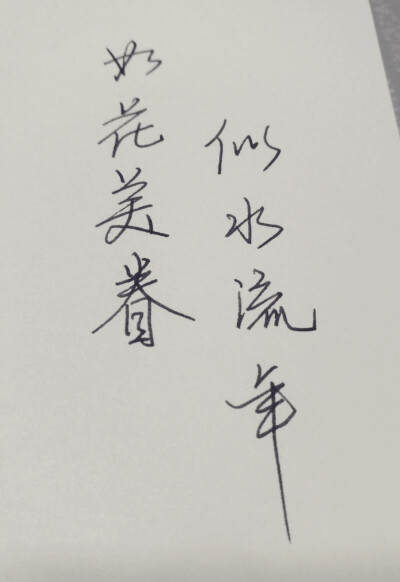 如花美眷
似水流年